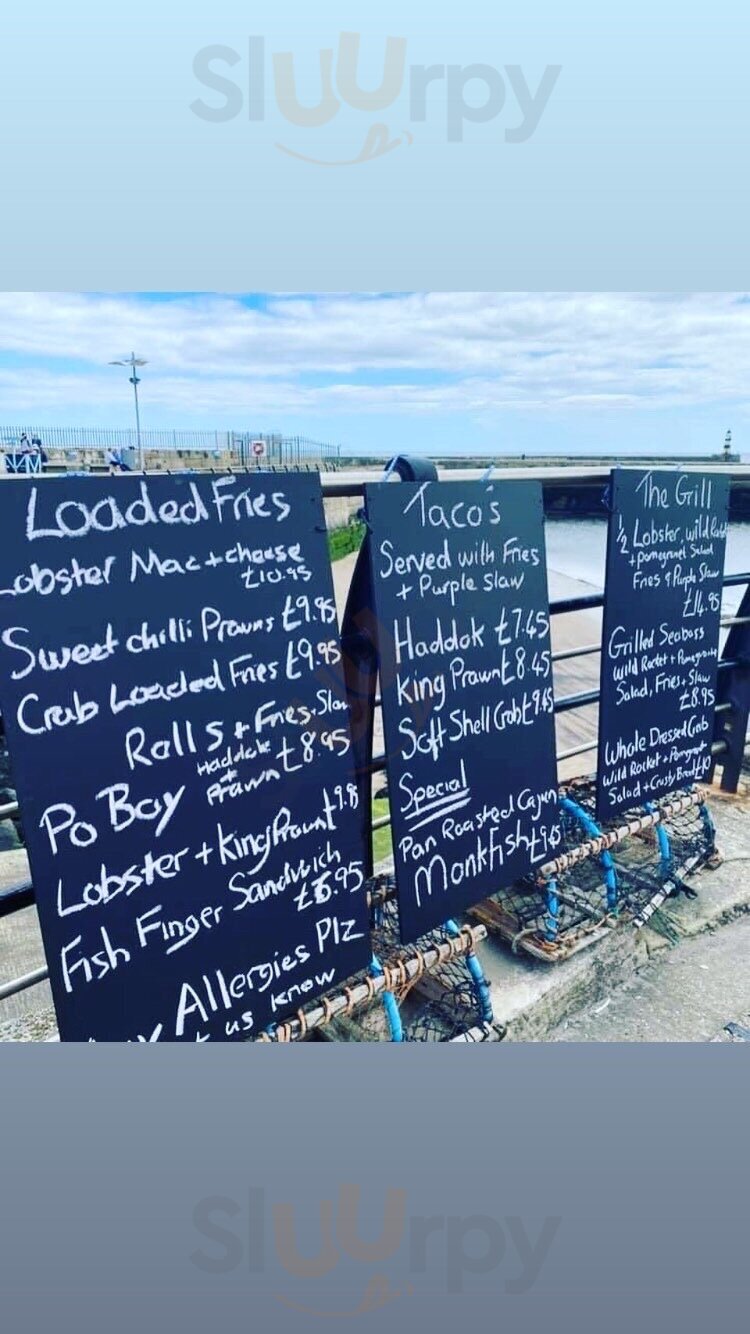 Sluurpy
Loaded Fries
Lobster Mac + cheese
£10.95
Sweet chilli Prawns £9.95
Crab Loaded Fries £9.95
Rolls + Fries. Slaw
Po Boy Haddok + Prawn £8.95
Lobster + King Prawn £9.95
Fish Finger Sandwich
£6.95
Any Allergies Plz
let us know
Taco's
Served with Fries
+ Purple Slaw
Haddok £7.45
King Prawn £8.45
Soft Shell Crab £9.45
Special
Pan Roasted Cajun
Monkfish £9.45
The Grill
½ Lobster, wild Rocket
+ pomegranet Salad
Fries & Purple Slaw
£14.95
Grilled Seabass
Wild Rocket + Pomegranate
Salad, Fries, Slaw
£8.95
Whole Dressed Crab
Wild Rocket + Pomegranat
Salad + Crusty Bread £10
Sluurpy